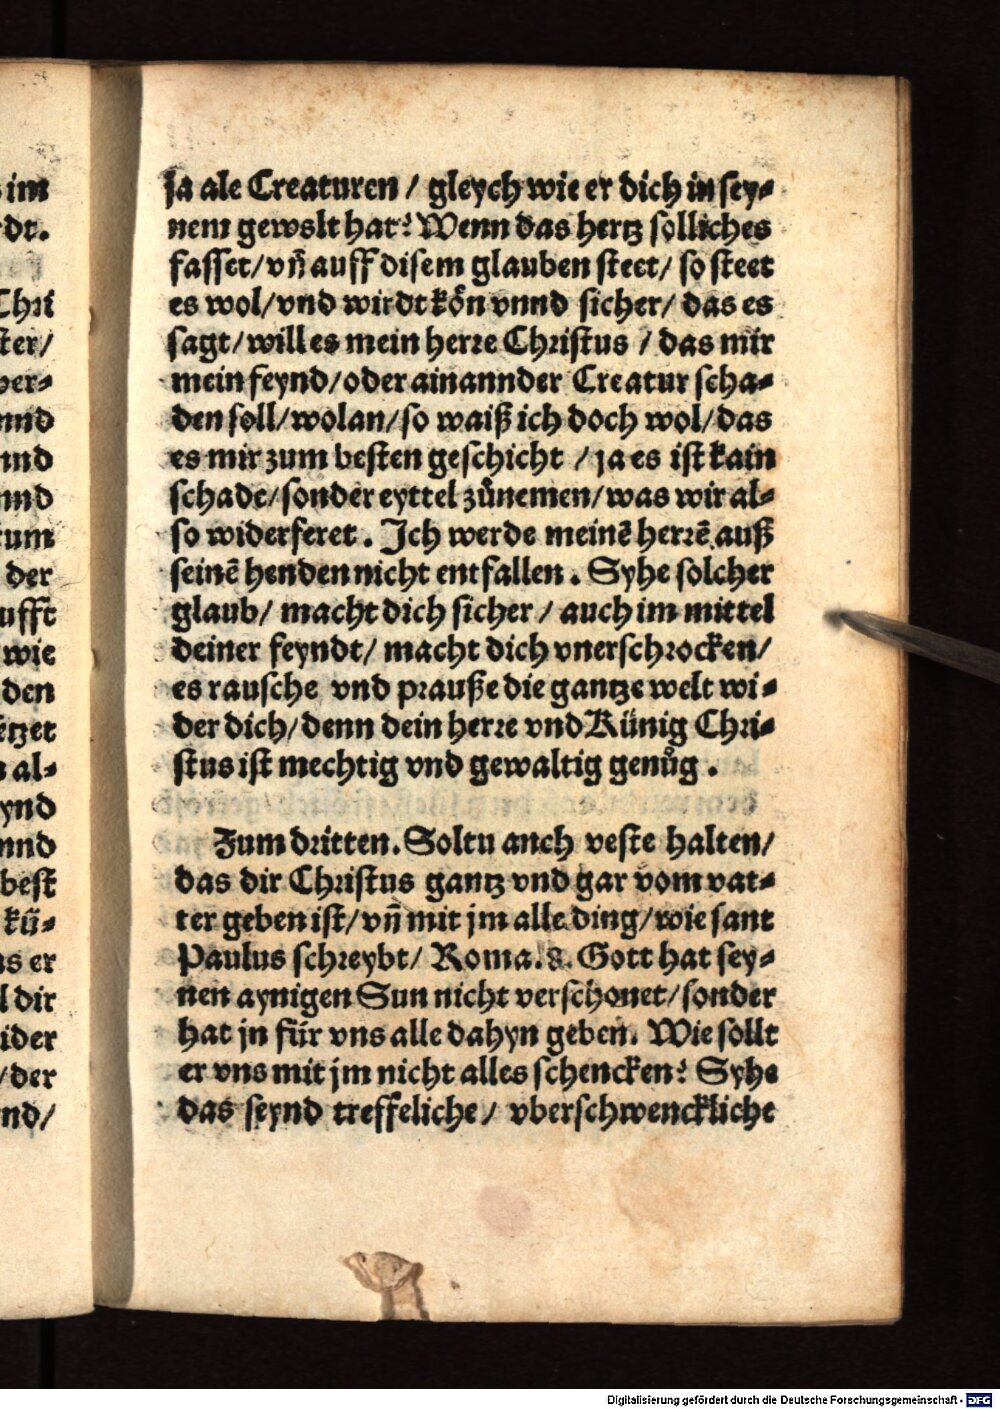 im
dt.
Chri
ster/
ver⸗
nnd
nnd
nnd
tum
der
ufft
wie
den
etzet
al⸗
ynd
nnd
best
kü⸗
ns er
l dir
ider
/der
nd/
ja ale Creaturen / gleych wie er dich in sey⸗
nem gewalt hat? Wenn das hertz solliches
fasset/vn̄ auff disem glauben steet/ so steet
es wol/vnd wirdt kön vnnd sicher/ das es
sagt/will es mein herre Christus / das mir
mein feynd/oder ainannder Creatur scha⸗
den soll/wolan/so waiß ich doch wol/das
es mir zum besten geschicht / ja es ist kain
schade/sonder eyttel zůnemen/was wir al⸗
so widerferet. Ich werde meinē herrē auß
seinē henden nicht entfallen. Syhe solcher
glaub/ macht dich sicher / auch im mittel
deiner feyndt/ macht dich vnerschrocken/
es rausche vnd prauße die gantze welt wi⸗
der dich/denn dein herre vnd Künig Chri⸗
stus ist mechtig vnd gewaltig genůg.
Zum dritten. Soltu anch veste halten/
das dir Christus gantz vnd gar vom vat⸗
ter geben ist/vn̄ mit jm alle ding/wie sant
Paulus schreybt/ Roma. 8. Gott hat sey⸗
nen aynigen Sun nicht verschonet/sonder
hat jn für vns alle dahyn geben. Wie sollt
er vns mit jm nicht alles schencken? Syhe
das seynd treffeliche/ vberschwenckliche
Digitalisierung gefördert durch die Deutsche Forschungsgemeinschaft - DFG